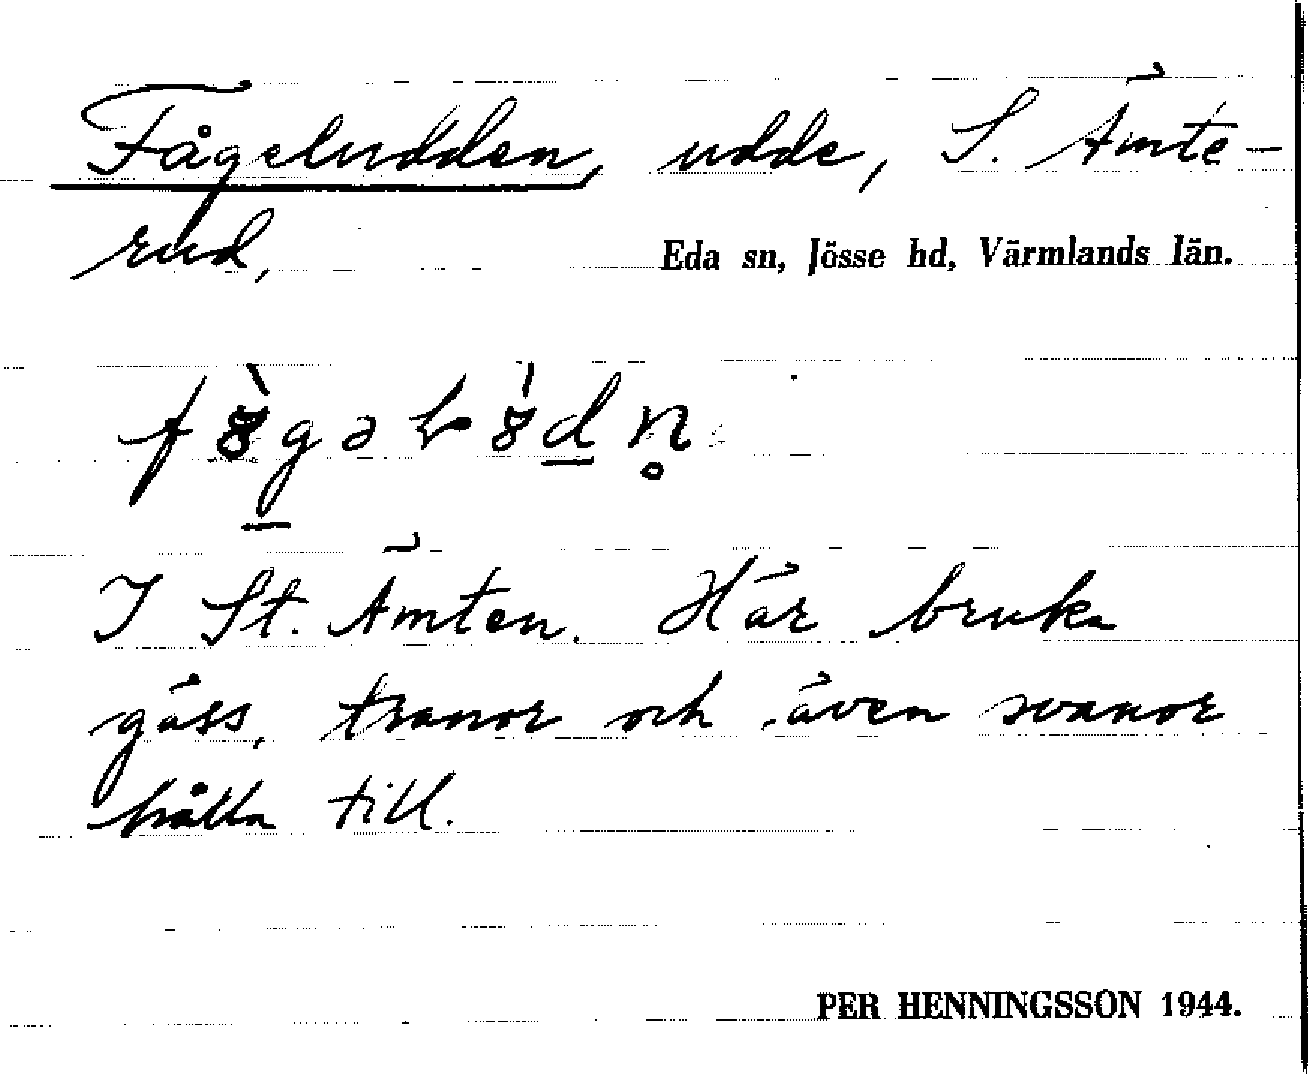 Fågeludden, udde, S. Ämte-
rud,
Eda sn, Jösse hd, Värmlands län.
I St. Ämten. Här bruka
gäss, tranor och även svanor
hålla till.
PER HENNINGSSON 1944.